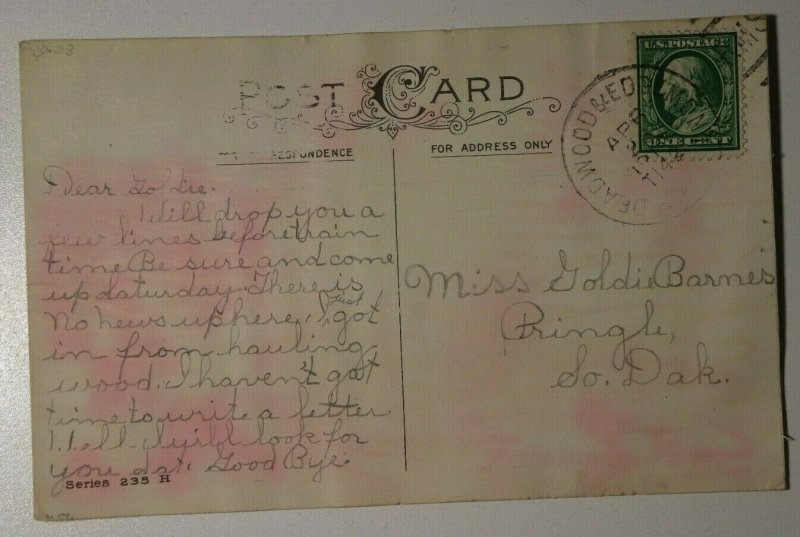 POST CARD
FOR CORRESPONDENCE
FOR ADDRESS ONLY
U.S. POSTAGE
ONE CENT
DEADWOOD & EDGEMONT
APR
Dear Goldie.
Will drop you a
few lines before train
time. Be sure and come
up Saturday. There is
No news up here. I just got
in from hauling
wood. I haven't got
time to write a letter
Well I will look for
you Sat. Good Bye.
Series 235 H
Miss Goldie Barnes
Pringle,
So. Dak.